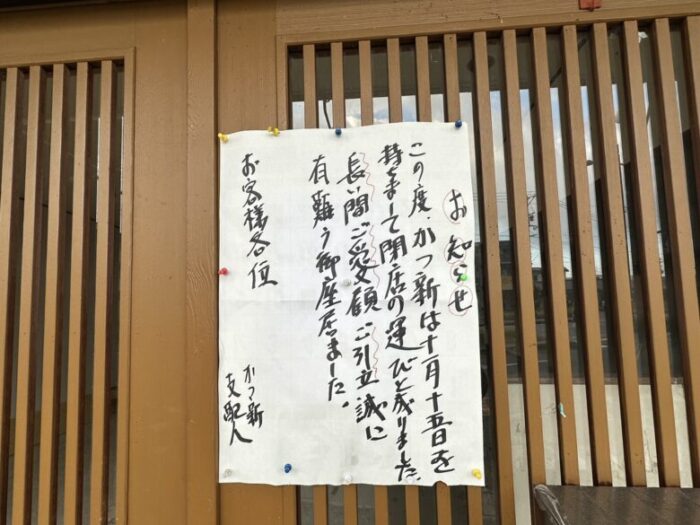 お知らせ
この度、かつ新は十一月十五日を
持ちまして閉店の運びと成りました。
長い間ご愛顧ご引立誠に
有難う御座居ました。
お客様各位
かつ新
支配人